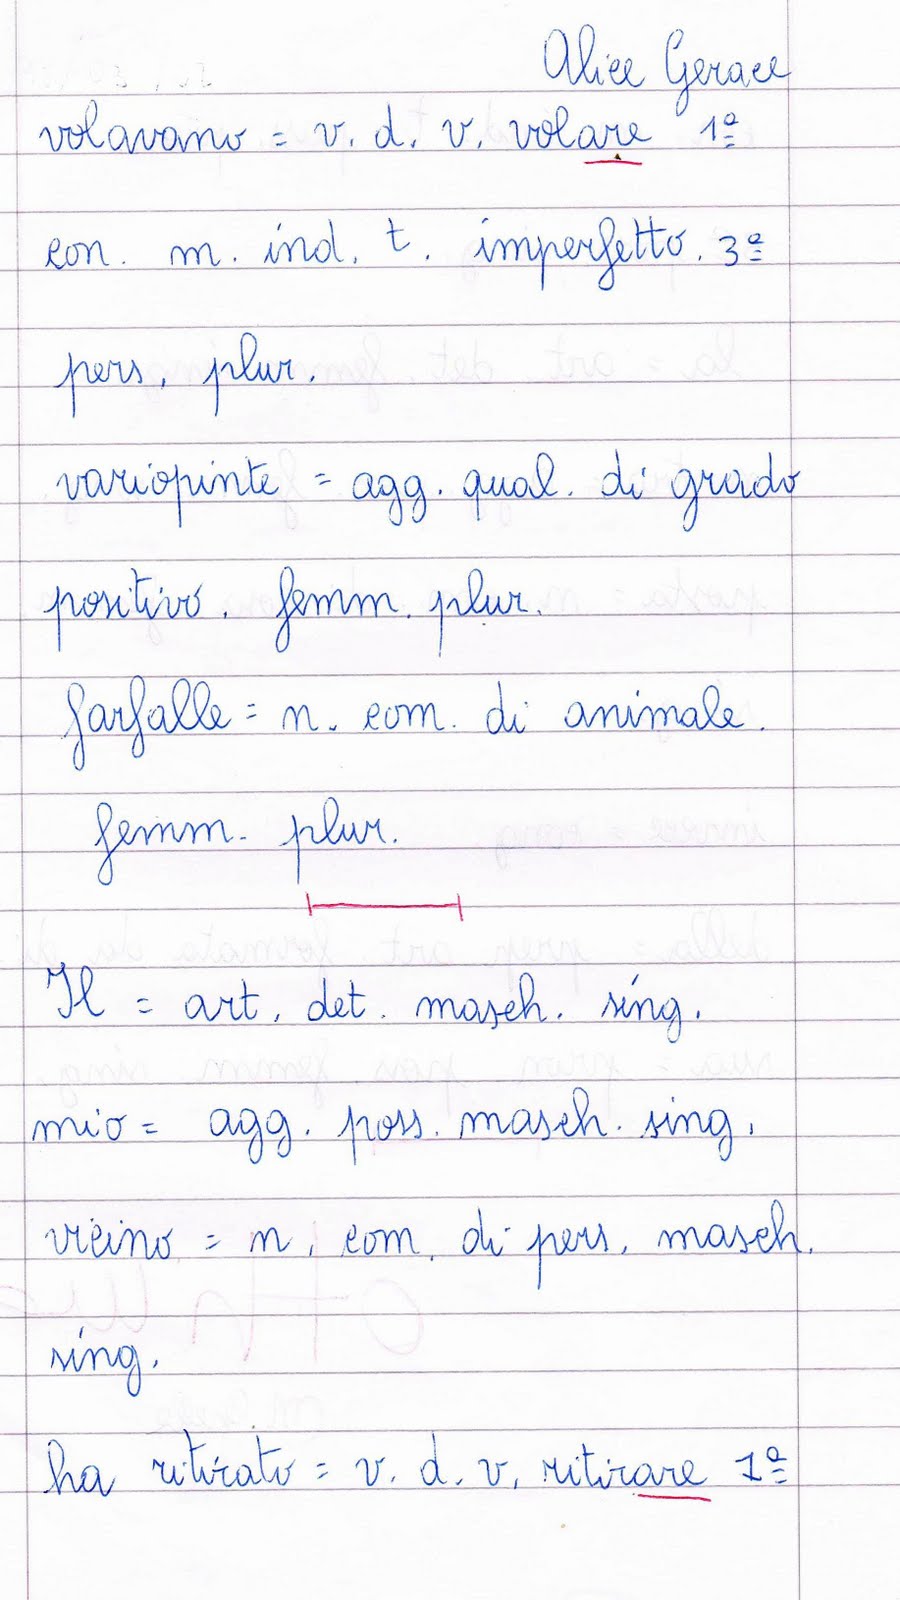 Alice Gerace
volavano = v. d. v. volare 1ª
con. m. ind. t. imperfetto. 3ª
pers. plur.
variopinte = agg. qual. di grado
positivo. femm. plur.
farfalle = n. com. di animale.
femm. plur.
Il = art. det. masch. sing.
mio = agg. poss. masch. sing.
vicino = n. com. di pers. masch.
sing.
ha ritirato = v. d. v. ritirare 1ª